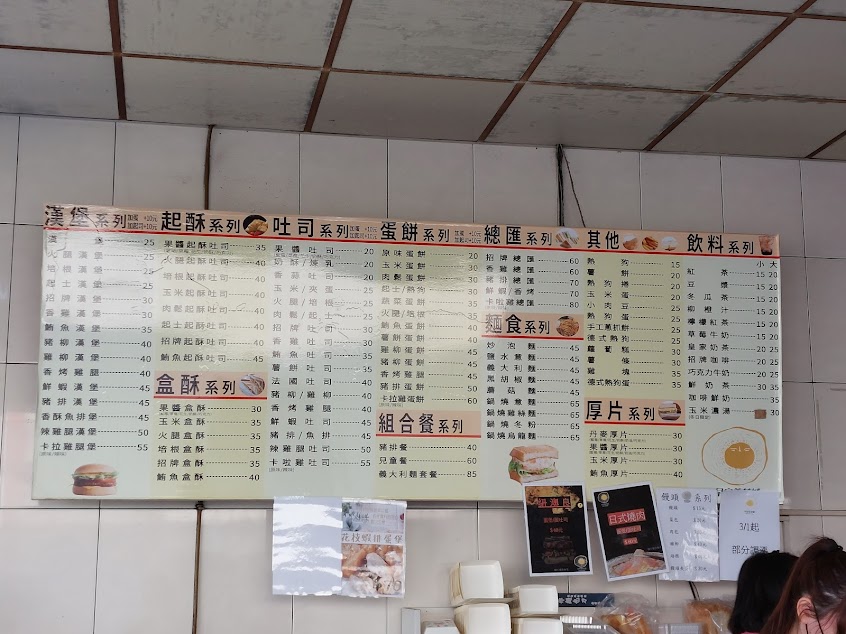 漢堡系列 加蛋 +10元 加起司+10元
堡 25
火腿漢堡 25
培根漢堡 25
起士漢堡 25
招牌漢堡 30
香雞漢堡 30
鮪魚漢堡 35
豬柳漢堡 40
雞柳漢堡 40
香烤雞腿 40
鮮蝦漢堡 45
豬排漢堡 45
香酥魚排堡 45
辣雞腿堡 50
卡拉雞腿堡 55
起酥系列
果醬起酥吐司 35
火腿起酥吐司 40
培根起酥吐司 40
玉米起酥吐司 40
肉鬆起酥吐司 40
起士起酥吐司 40
招牌起酥吐司 45
鮪魚起酥吐司 45
盒酥系列
果醬盒酥 30
玉米盒酥 35
火腿盒酥 35
培根盒酥 35
招牌盒酥 35
鮪魚盒酥 40
吐司系列 加蛋 +10元 加起司+10元
果醬吐司 20
奶酥/煉乳 20
香蒜吐司 20
玉米/夾蛋 25
火腿/培根 25
肉鬆/起士 25
招牌吐司 30
香雞吐司 30
鮪魚吐司 35
薯餅吐司 35
法國吐司 40
豬柳/雞柳 40
香烤雞腿 40
鮮蝦吐司 45
豬排/魚排 45
辣雞吐司 50
卡啦雞吐司 55
蛋餅系列 加蛋 +10元 加起司+10元
原味蛋餅 20
玉米蛋餅 30
肉鬆蛋餅 30
起士/熱狗 30
蔬菜蛋餅 35
火腿/培根 35
鮪魚蛋餅 40
薯餅蛋餅 40
雞柳蛋餅 45
豬柳蛋餅 45
豬排蛋餅 50
卡拉雞蛋餅 60
組合餐系列
豬排餐 40
兒童餐 60
義大利麵套餐 85
總匯系列
招牌總匯 60
香雞總匯 60
豬排總匯 70
鮮蝦/香烤 70
卡啦雞總匯 80
麵食系列
炒泡麵 45
鹽水意麵 45
義大利麵 45
黑胡椒麵 45
蘑菇麵 45
鍋燒意麵 65
鍋燒雞絲麵 65
鍋燒冬粉 65
鍋燒烏龍麵 65
其他
熱狗 15
薯餅 25
熱狗捲 20
玉米蛋 20
小肉豆 25
熱狗蛋 25
手工蔥抓餅 25
德式熱狗 25
蘿蔔糕 30
薯條 30
雞塊 35
德式熱狗蛋 35
厚片系列
丹麥厚片 30
果醬厚片 30
玉米厚片 30
鮪魚厚片 30
飲料系列
小 大
紅茶 15 20
豆漿 15 20
冬瓜茶 15 20
柳橙汁 15 20
檸檬紅茶 15 20
草莓牛奶 15 20
皇家奶茶 20 25
招牌咖啡 20 25
巧克力牛奶 20 25
鮮奶茶 30 35
咖啡鮮奶 30 35
玉米濃湯 30
花枝蝦排蛋堡
日式燒肉
饅頭系列
3/1起
部分調漲